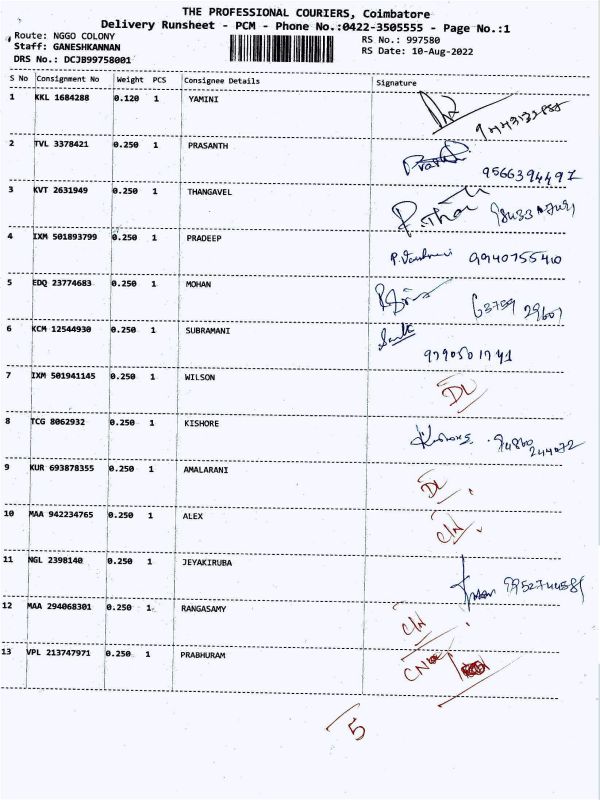 THE PROFESSIONAL COURIERS, Coimbatore
Delivery Runsheet - PCM - Phone No.:0422-3505555 - Page No.:1
Route: NGGO COLONY
RS No.: 997580
Staff: GANESHKANNAN
RS Date: 10-Aug-2022
DRS No.: DCJB99758001
S No Consignment No Weight PCS Consignee Details Signature
1 KKL 1684288 0.120 1 YAMINI
2 TVL 3378421 0.250 1 PRASANTH 9566394497
3 KVT 2631949 0.250 1 THANGAVEL P.Tha
4 IXM 501893799 0.250 1 PRADEEP 9940755410
5 EDQ 23774683 0.250 1 MOHAN 63759 29607
6 KCM 12544930 0.250 1 SUBRAMANI
7 IXM 501941145 0.250 1 WILSON DL
8 TCG 8062932 0.250 1 KISHORE Kishore 94860 244072
9 KUR 693878355 0.250 1 AMALARANI DL
10 MAA 942234765 0.250 1 ALEX C/N
11 NGL 2398140 0.250 1 JEYAKIRUBA 9952744581
12 MAA 294068301 0.250 1 RANGASAMY C/N
13 VPL 213747971 0.250 1 PRABHURAM
5